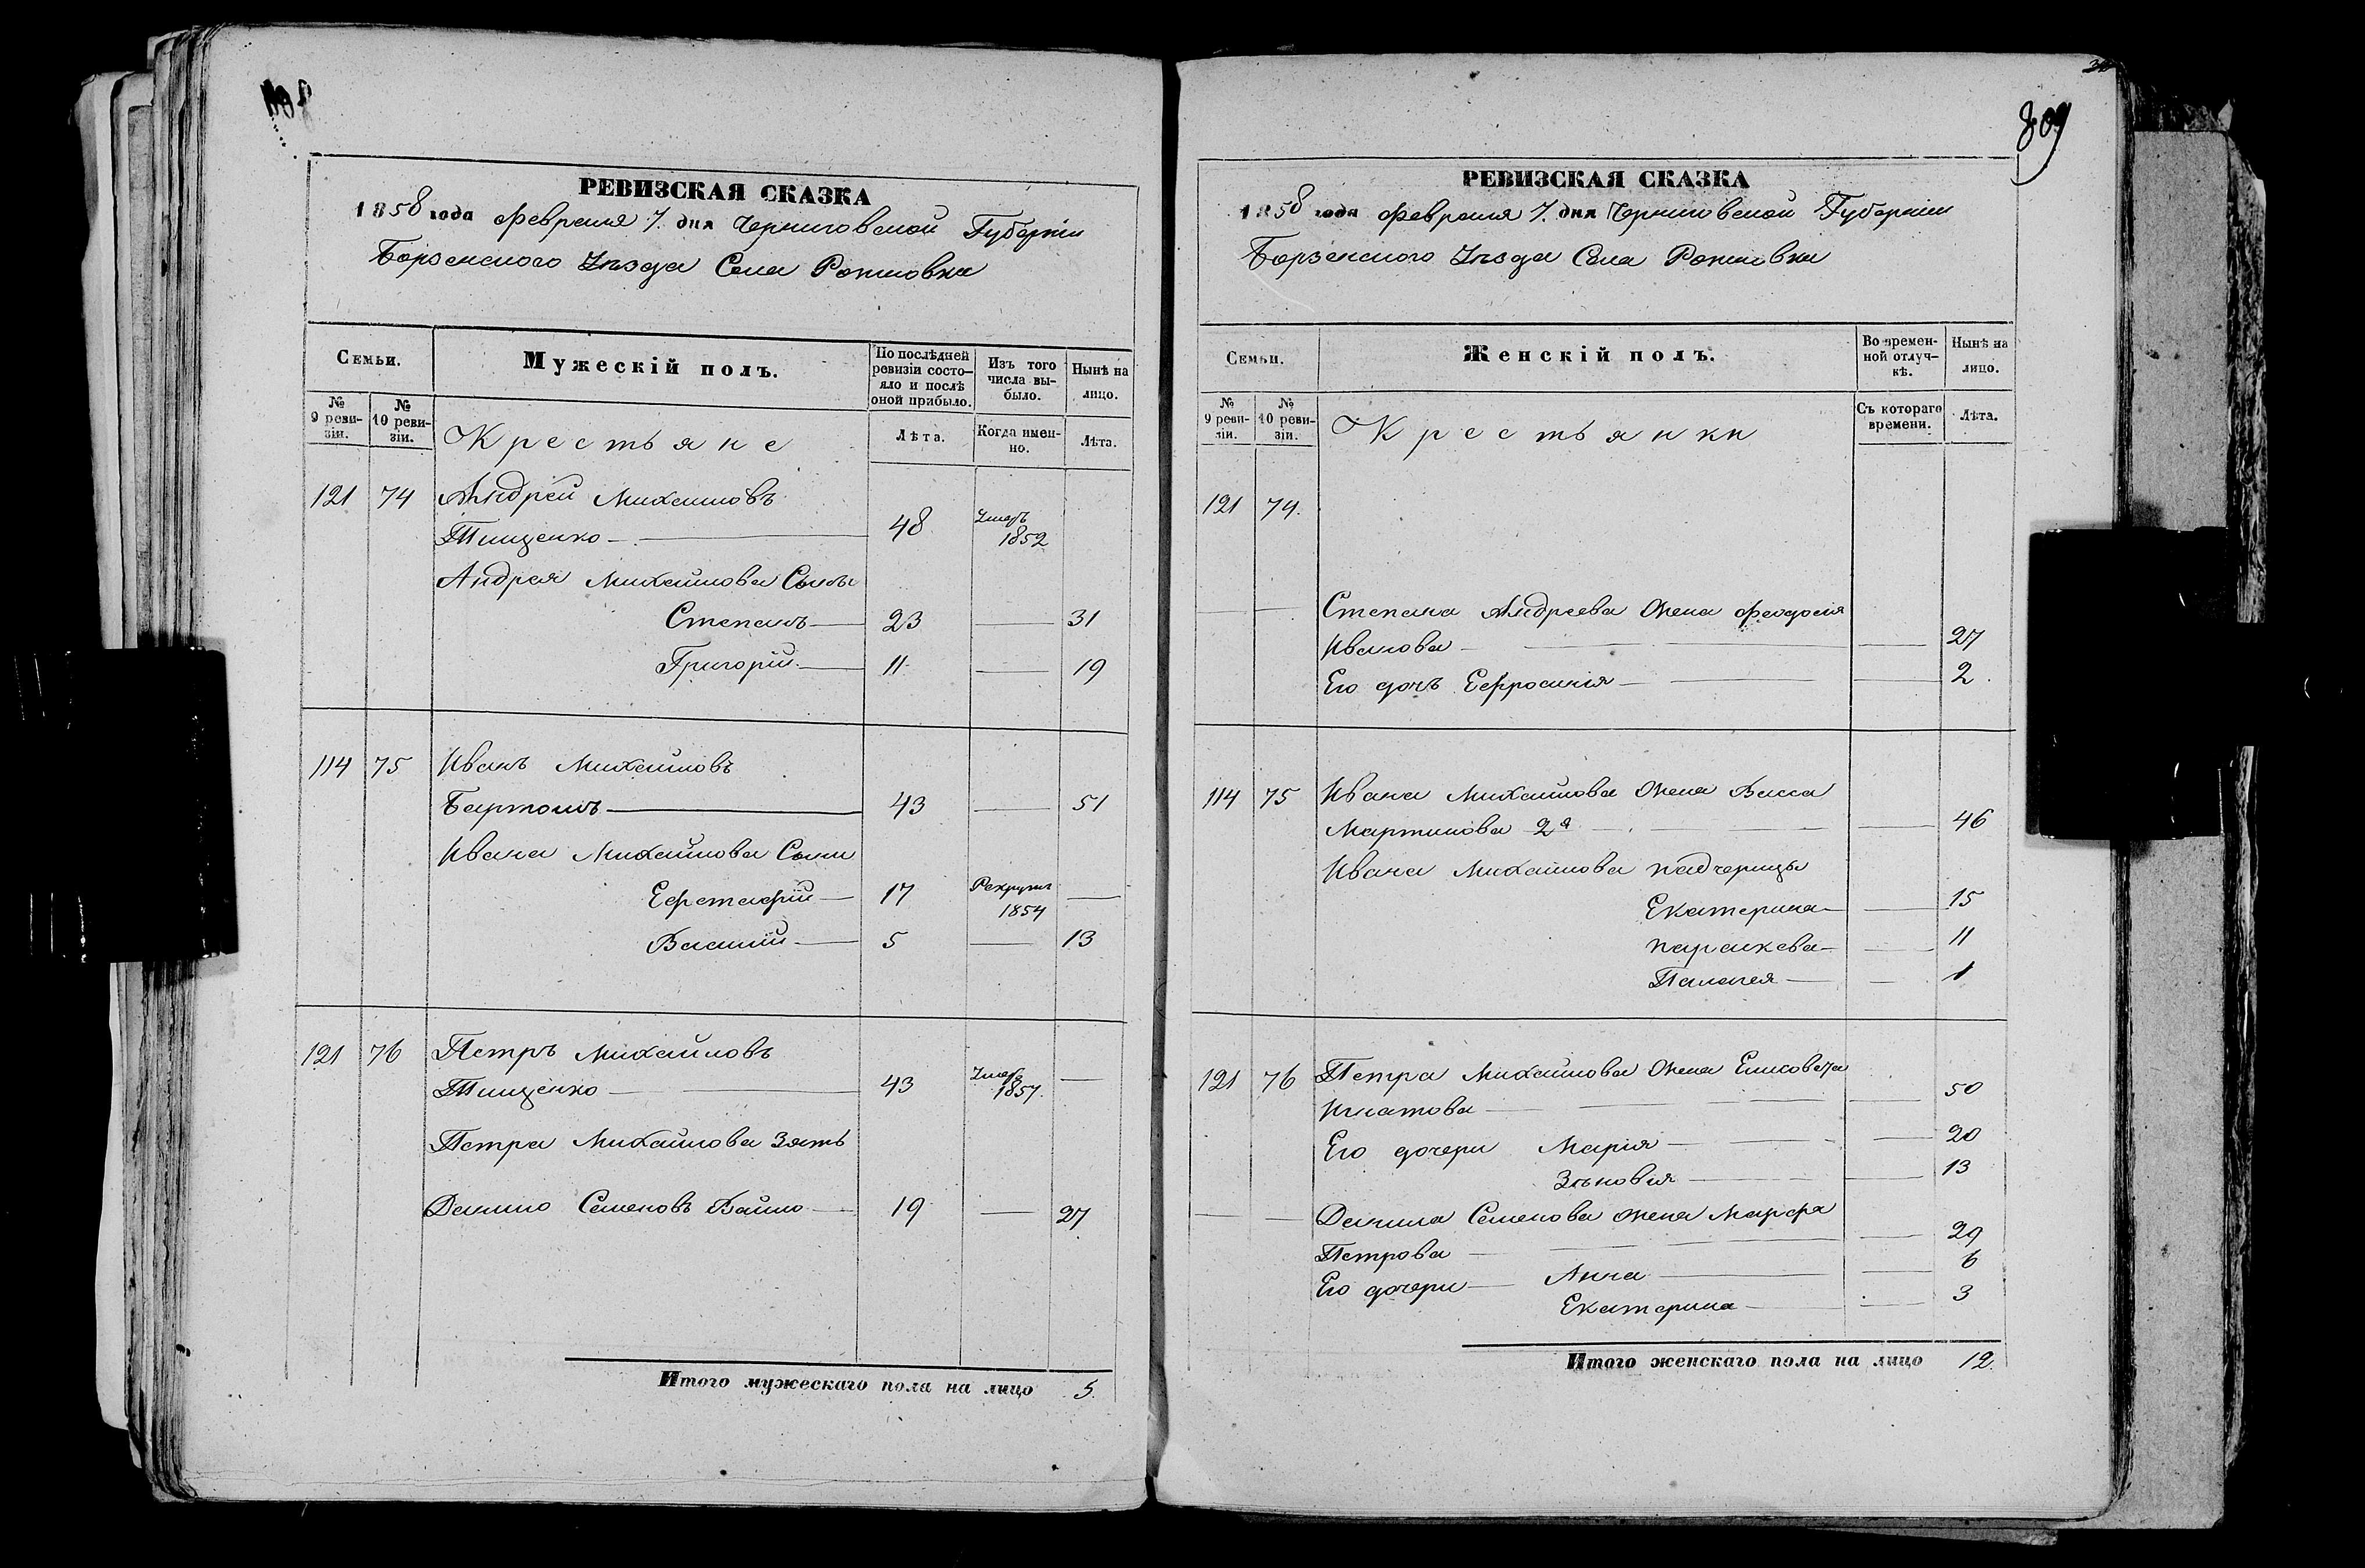 РЕВИЗСКАЯ СКАЗКА
1858 года Февраля 7. дня Черниговской Губерніи
Борзенского Уѣзда Села
Семьи.
Мужескій полъ.
По послѣдней ревизіи состояло и послѣ оной прибыло.
Изъ того числа выбыло.
Нынѣ на лицо.
№ 9 ревизіи.
№ 10 ревизіи.
Крестьяне
Лѣта.
Когда именно.
Лѣта.
121 74 Андрей Михайловъ
Тищенко 48 Умеръ 1852
Андрея Михайлова Сыны
Степанъ 23 31
Григорій 11 19
114 75 Иванъ Михайловъ
43 51
Ивана Михайлова Сыны
17 Рекрутъ 1854
Василій 5 13
121 76 Петръ Михайловъ
Тищенко 43 Умеръ 1857.
Петра Михайлова Зять
Данило Семеновъ 19 27
Итого мужескаго пола на лицо 5.
809
РЕВИЗСКАЯ СКАЗКА
1858 года Февраля 7. дня Черниговской Губерніи
Борзенского Уѣзда Села
Семьи.
Женскій полъ.
Во временной отлучкѣ.
Нынѣ на лицо.
№ 9 ревизіи.
№ 10 ревизіи.
Крестьянки
Съ котораго времени.
Лѣта.
121 74.
Степана Андреева Жена Феодосія
Иванова 27
Его дочь Ефросинія 2.
114 75 Ивана Михайлова Жена Васса
Мартинова 2я 46
Ивана Михайлова падчерицы
Екатерина 15
Параскева 11
Пелагея 1
121 76 Петра Михайлова Жена Елисовета
Игнатова 50
Его дочери Марія 20
Зѣновія 13
Данила Семенова жена Марфа
Петрова 29
Его дочери Анна 6
Екатерина 3
Итого женскаго пола на лицо 12.